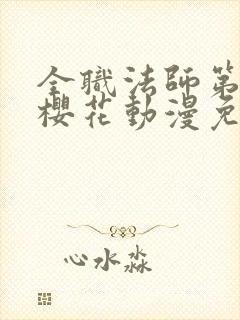 全職法師第
櫻花動漫免
心水淼